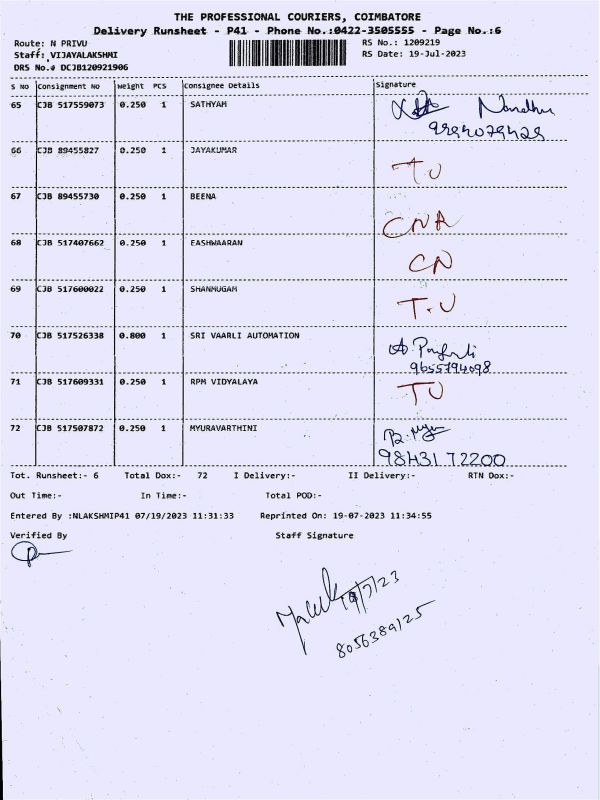 THE PROFESSIONAL COURIERS, COIMBATORE
Delivery Runsheet - P41 - Phone No.:0422-3505555 - Page No.:6
Route: N PRIVU RS No.: 1209219
Staff: VIJAYALAKSHMI RS Date: 19-Jul-2023
DRS No.# DCJB120921906
S No Consignment No Weight PCS Consignee Details Signature
65 CJB 517559073 0.250 1 SATHYAM Nandhu
66 CJB 89455827 0.250 1 JAYAKUMAR T.U
67 CJB 89455730 0.250 1 BEENA CNA
68 CJB 517407662 0.250 1 EASHWAARAN CN
69 CJB 517600022 0.250 1 SHANMUGAM T.U
70 CJB 517526338 0.800 1 SRI VAARLI AUTOMATION
9655794098
71 CJB 517609331 0.250 1 RPM VIDYALAYA TU
72 CJB 517507872 0.250 1 MYURAVARTHINI
98431 72200
Tot. Runsheet:- 6 Total Dox:- 72 I Delivery:- II Delivery:- RTN Dox:-
Out Time:- In Time:- Total POD:-
Entered By :NLAKSHMIP41 07/19/2023 11:31:33 Reprinted On: 19-07-2023 11:34:55
Verified By Staff Signature
19/7/23
8056389125